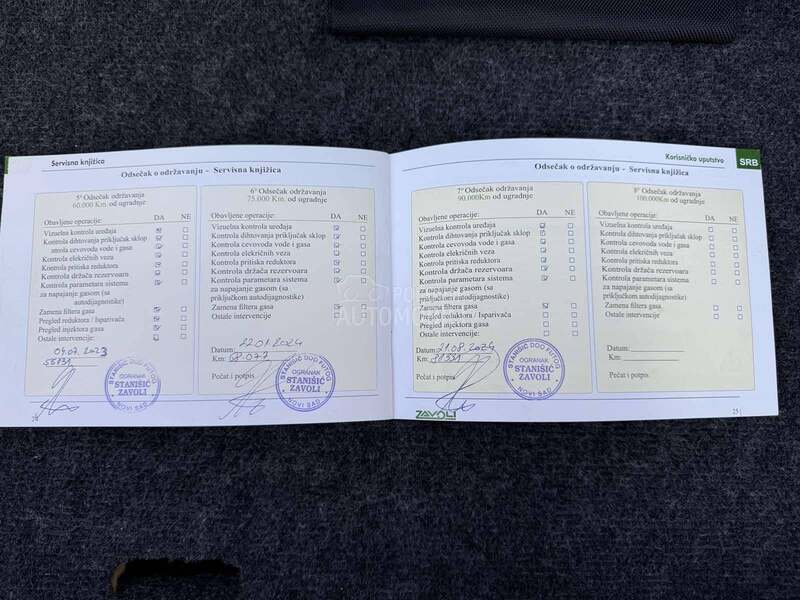 Servisna knjižica
Odsečak o održavanju - Servisna knjižica
5° Odsečak održavanja
60.000 Km. od ugradnje
Obavljene operacije: DA NE
Vizuelna kontrola uređaja
Kontrola dihtovanja priključak sklop
ntrola cevovoda vode i gasa
Kontrola elekričnih veza
Kontrola pritiska reduktora
Kontrola držača rezervoara
Kontrola parametara sistema
za napajanje gasom (sa
priključkom autodijagnostike)
Zamena filtera gasa
Pregled reduktora / Isparivača
Pregled injektora gasa
Ostale intervencije:
04.07.2023
STANIŠIĆ DOO FUTOG
OGRANAK
STANIŠIĆ
ZAVOLI
NOVI SAD
6° Odsečak održavanja
75.000 Km. od ugradnje
Obavljene operacije: DA NE
Vizuelna kontrola uređaja
Kontrola dihtovanja priključak sklop
Kontrola cevovoda vode i gasa
Kontrola elekričnih veza
Kontrola pritiska reduktora
Kontrola držača rezervoara
Kontrola parametara sistema
za napajanje gasom (sa
priključkom autodijagnostike)
Zamena filtera gasa
Ostale intervencije
Datum: 22.01.2024
Km: 68.077
Pečat i potpis
STANIŠIĆ DOO FUTOG
OGRANAK
STANIŠIĆ
ZAVOLI
NOVI SAD
Korisničko uputstvo SRB
Odsečak o održavanju - Servisna knjižica
7° Odsečak održavanja
90.000Km od ugradnje
Obavljene operacije: DA NE
Vizuelna kontrola uređaja
Kontrola dihtovanja priključak sklop
Kontrola cevovoda vode i gasa
Kontrola elekričnih veza
Kontrola pritiska reduktora
Kontrola držača rezervoara
Kontrola parametara sistema
za napajanje gasom (sa
priključkom autodijagnostike)
Zamena filtera gasa
Pregled reduktora / Isparivača
Pregled injektora gasa
Ostale intervencije:
Datum: 21.08.2024
Km:
Pečat i potpis
STANIŠIĆ DOO FUTOG
OGRANAK
STANIŠIĆ
ZAVOLI
NOVI SAD
8° Odsečak održavanja
100.000Km od ugradnje
Obavljene operacije: DA NE
Vizuelna kontrola uređaja
Kontrola dihtovanja priključak sklop
Kontrola cevovoda vode i gasa
Kontrola elekričnih veza
Kontrola pritiska reduktora
Kontrola držača rezervoara
Kontrola parametara sistema
za napajanje gasom (sa
priključkom autodijagnostike)
Zamena filtera gasa
Ostale intervencije
Datum:
Km:
Pečat i potpis
ZAVOLI
25